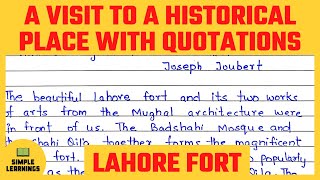 A VISIT TO A HISTORICAL
PLACE WITH QUOTATIONS
Joseph Joubert
The beautiful lahore fort and its two works
of arts from the Mughal architecture were
in front of us. The Badshahi Mosque and
Shahi Qila together forms the magnificent
fort. popularly
as the Qila. The
SIMPLE
LEARNINGS
LAHORE FORT